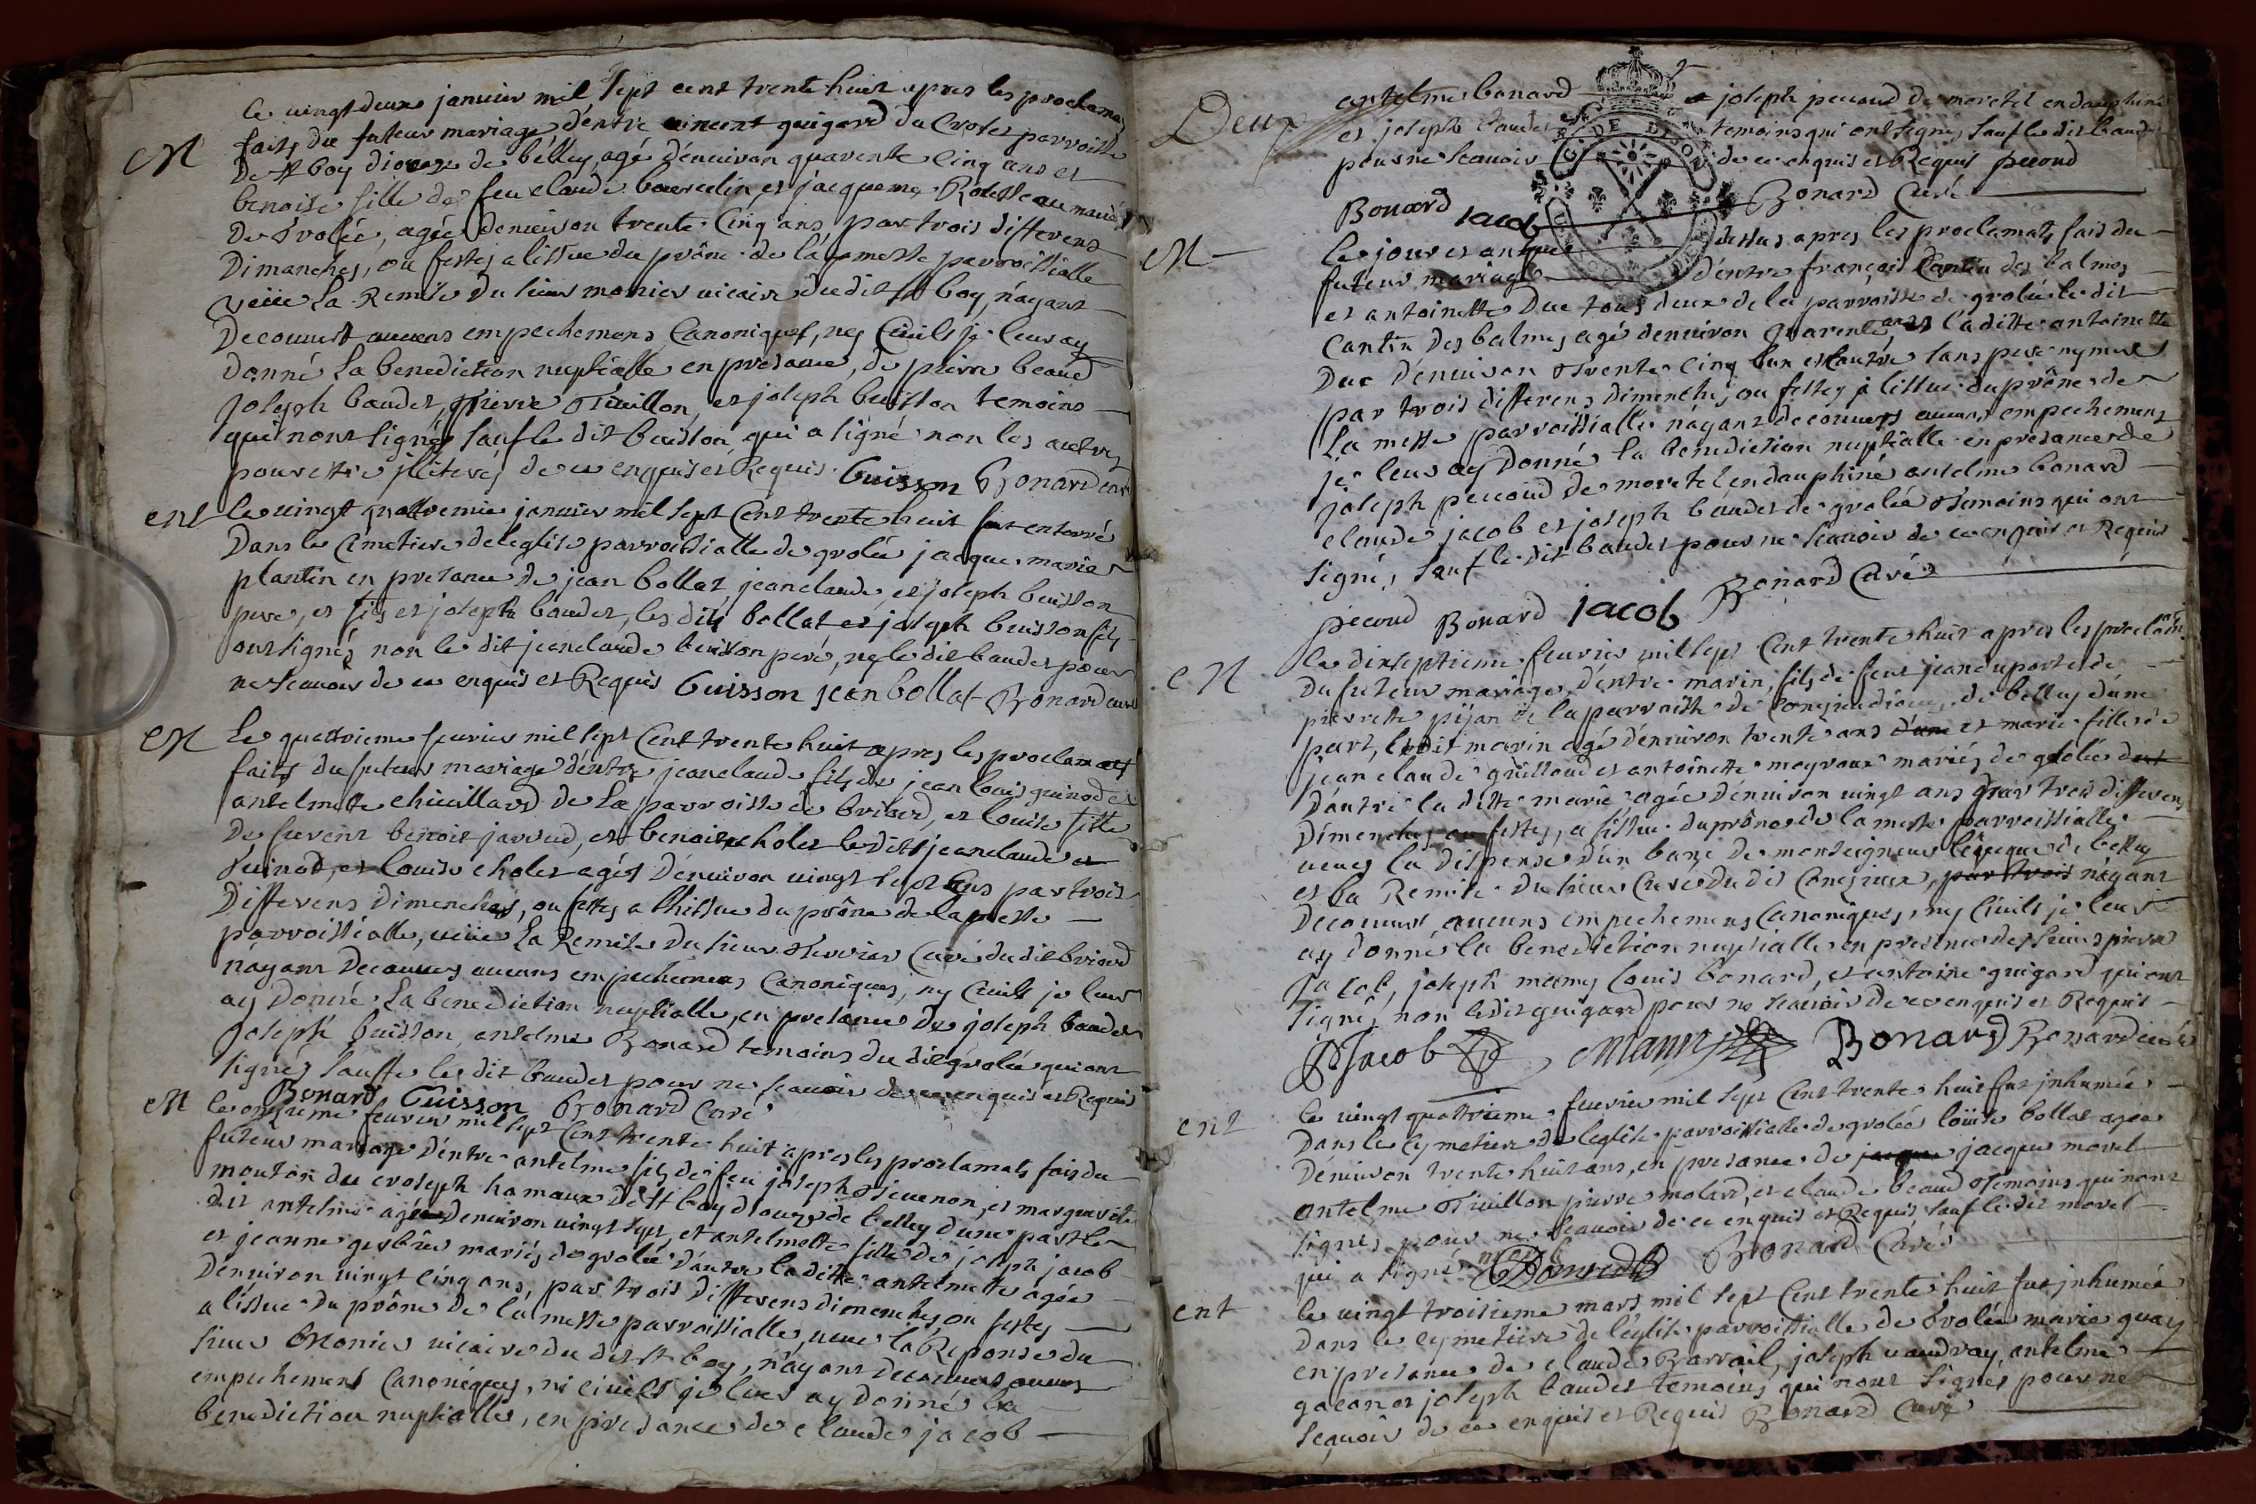 Le vingt deux janvier mil sept cent trente huit apres les proclamats
M
faits du futeur mariage d'entre vincent guigard du Crolet parroisse
De st boy dioceze de belley, agé d'enuiron quarente cinq ans et
benoite fille de feu claude bourdin, et jacquema mariés
De Grolée, agée denuiron trente cinq ans par trois differens
Dimanches, ou festes a lissue du prône de la messe parroissialle
veüe La Remise du sieur monier vicaire dudit st boy, n'ayant
Decouuert aucuns empechemens Canoniques, ny Civils je leurs ay
Donné La benediction nuptialle en presance, de pierre beaud
Joseph baudet, pierre Tiuillon, et joseph buisson temoins
qui n'ont signés sauf le dit buisson qui a signé non les autres
pour estre illiterés de ce enquis et Requis. Buisson Bonard curé
ent Le vingt quattreme januier mil sept Cent trente huit fut enterré
Dans le Cimetiere de leglise parroissialle de grolée jacque marie
plantin en presance de jean bollat, jeanclaude, et joseph buisson
pere, et fils et joseph baudet, les dits bollat et joseph buisson fils
ont signés non le dit jeanclaude buisson pere, ny le dit baudet pour
ne scauoir de ce enquis et Requis Buisson jean bollat Bonard curé
M Le quattrieme feurier mil sept Cent trente huit apres les proclamats
faits du futeur mariage d'entre jeanclaude fils de jean louis quinod et
antelmette chiuillard de La parroisse de briord, et louise fille
De feu benoit jarraud, et benoite cholet le dit jeanclaude et
quinod, et louise cholet agés D'enuiron vingt sept ans par trois
Differens Dimenches, ou festes a lhissue du prône de la messe
parroissialle, veüe La Remise du sieur Curé dudit briord
n'ayant Decouuert aucuns empechemens Canoniques, ny Ciuils je leur
ay Donné La benediction nuptialle, en presance de joseph baudet
Joseph buisson, antelme Bonard temoins du dit grolée qui ont
signés sauffe le dit baudet pour ne scauoir de ce enquis et Requis
Bonard Buisson Bonard Curé
M Le onzieme feurier mil sept Cent trente huit apres les proclamats fais du
futeur mariage d'entre antelme fils de feu joseph Téuenon, et marguerite
mouton du hamaux De st boy dioceze de belley d'une part le
dit antelme agé denuiron vingt sept, et antelmette fille de joseph jacob
et jeanne gerbier mariés de grolée d'autre ladite antelmette agée
D'enuiron vingt cinq ans, par trois Differens dimenches, ou festes
a lissue du prône de la messe parroissialle, veüe la Reponse du
sieur Monier vicaire du dit st boy, n'ayant Decouuert aucuns
empechemens Canoniques, ni ciuils je leur ay donné la
benediction nuptialle, en presance de claude jacob
Deux
antelme bonard et joseph pecoud de moretel en dauphiné
et joseph baudet temoins qui ont signés sauf le dit baudet
pour ne scauoir de ce enquis et Requis pecoud
Bonard Jacob Bonard Curé
M Le jour et an que dessus apres les proclamats fais du
futeur mariage d'entre françois Cantin des balmes
et antoinette Duc tous deux de la parroisse de grolée le dit
Cantin des balmes agé denuiron quarente ans et la ditte antoinette
Duc D'enuiron trente cinq l'un et l'autre sans pere ny mere
par trois differens dimenches ou festes à l'issue du prône de
La messe parroissialle n'ayant decouuers aucuns empechemens
je leur ay Donné la benediction nuptialle en presance de
Joseph peccoud de moretel en dauphiné antelme bonard
claude jacob et joseph baudet de grolée temoins qui ont
signés, sauf le dit baudet pour ne scauoir de ce enquis et Requis
pecoud Bonard Jacob Bonard Curé
M Le dixseptieme feurier mil sept Cent trente huit apres les proclamats
Du futeur mariage, d'entre marin, fils de feu jean duporte et de
pierrette pijan de la parroisse de dioceze de belley d'une
part, le dit marin agé d'enuiron trente ans et marie fille de
jean claude guilloud et antoinette meyroux mariés de grolée
d'autre la ditte marie agée d'enuiron vingt ans par trois differens
Dimenches ou festes, a lissue du prône de la messe parroissialle
veües la dispense d'un banc de monseigneur l'eueque de belley
et la Remise du sieur Curé du dit par trois n'ayant
Decouuert aucuns empechemens Canoniques, ny Ciuils je leur
ay donné la benediction nuptialle en presence des sieurs pierre
Jacob, joseph mamy louis bonard, et antoine guigard qui ont
signés non le dit guigard pour ne scauoir de ce enquis et Requis
P Jacob Mamy Bonard Bonard curé
ent Le vingt quattrieme feurier mil sept Cent trente huit fut jnhumée
Dans le Cymetiere de leglise parroissialle de grolée louise bollat agée
D'enuiron trente huit ans, en presance de jacque jacque morel
antelme Tiuillon pierre molard, et claude beaud temoins qui n'ont
signés pour ne scauoir de ce enquis et Requis sauf le dit morel
qui a signé morel Bonard Curé
ent Le vingt troisieme mars mil sept Cent trente huit fut jnhumée
dans le cymetiere de l'eglise parroissialle de Grolée marie quay
en presance de claude Barrail, joseph vaudray, antelme
et joseph baudet temoins qui n'ont signés pour ne
scauoir de ce enquis et Requis Bonard Curé